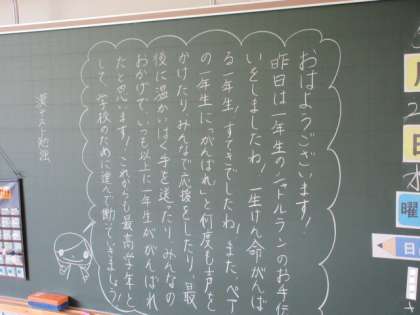 おはようございます！
昨日は一年生のシャトルランのお手伝
いをしましたね！一生けん命がんば
る一年生、すてきでしたね！また、ペア
の一年生に「がんばれ」と何度も声を
かけたり、みんなで応援をしたり、最
後に温かいはく手を送ったり、みんなの
おかげで、いつも以上に一年生ががんばれ
たと思います！これからも最高学年と
して、学校のために進んで働いていきましょう！
漢テスト勉強
月
日
曜
日